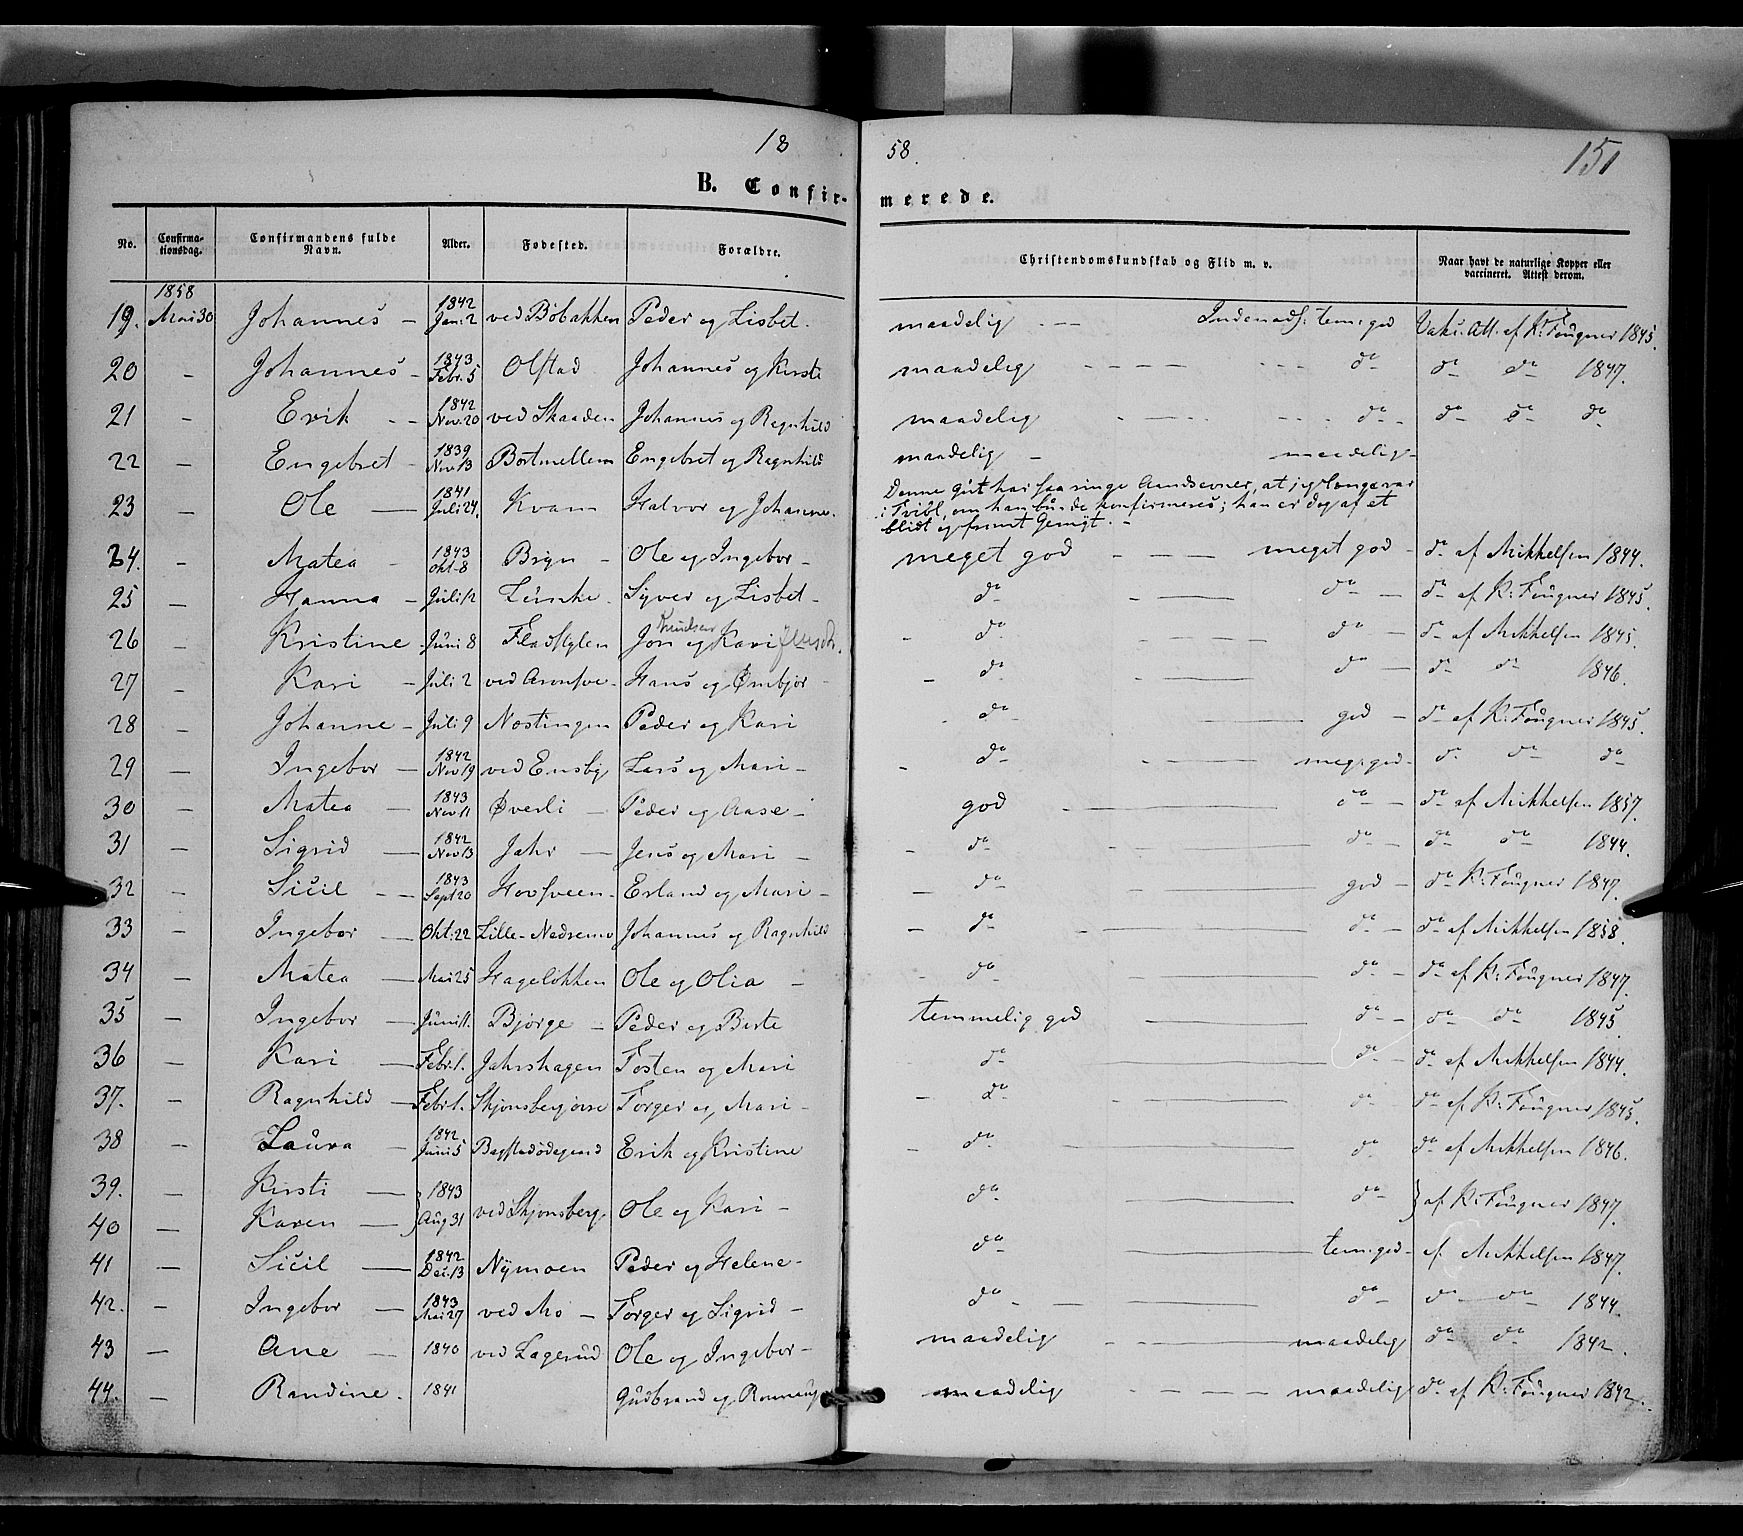 18 58. 151
B. Confirmerede.
No. Confirmationsdag. Confirmandens fulde Navn. Alder. Fødested. Forældre. Christendomskundskab og Flid m. v. Naar havt de naturlige Kopper eller vaccineret. Attest derom.
19. 1858 Mai 30 Johannes – 1842 Jan: 2 ved Böbakken Peder og Lisbet. maadelig - - - Indenadl: tem: god Vaks. Att. af K: Fougner 1845.
20 – Johannes – 1843 Febr: 5 Olstad Johannes og Kirsti maadelig - - - - do do do 1847.
21 – Erik – – 1842 Nov: 20 ved Skaaden Johannes og Ragnhild maadelig - - - - do do do do
22 – Engebret – 1839 Nov 13 Engebret og Ragnhild maadelig – maadelig –
23 – Ole – 1841 Juli 24. Kvam Halvor og Johanne. Denne Gut har saa ringe Aandsevner, at jeg længe var i Tvivl, om han burde konfirmeres; han er dog af et blidt og fromt Gemyt. –
24. – Matea – 1843 Okt: 8 Bryn – Ole og Ingebor – meget god - - - - meget god – do af Mikkelsen 1844.
25 – Hanna – Juli 12 Lunke – Syver og Lisbet – do do – do af K: Fougner 1845.
26 – Kristine – Juni 8 Fladstylen Jon Knudsen og Kari do do – do af Mikkelsen 1845.
27 – Kari – Juli 2 Hans og Ømbjør – do do – do do 1846.
28 – Johanne – Juli 9 Nostingen Peder og Kari do god – do af K: Fougner 1845.
29 – Ingebor – 1842 Nov 19 ved Ensby Lars og Mari – do meg: god – do do do
30 – Matea – 1843 Nov 11 Øverli – Peder og Aase – god do – do af Mikkelsen 1857.
31 – Sigrid – 1842 Nov 13 Jahr – Jens og Mari – do do – do do 1844.
32 – Sicil – 1843 Sept 20 Hovsveen – Erland og Mari – do god – do K: Fougner 1847.
33 – Ingebor – Okt: 22 Lille-Nedremo Johannes og Ragnhild do do – do af Mikkelsen 1858.
34 – Matea – Mai 25 Hageløkken Ole og Olia – do do – do af K: Fougner 1847.
35 – Ingebor – Juni 11. Bjørge – Peder og Birte temmelig god do – do do 1845
36 – Kari – Febr. 1. Jahrshagen Tosten og Mari do do – do af Mikkelsen 1844.
37. – Ragnhild – Febr. 1. Torger og Mari – do do do af K: Fougner 1845.
38 – Laura – 1842 Juni 5 Bagstadødegaard Erik og Kristine do do do af Mikkelsen 1846.
39. – Kirsti – 1843 Aug 31 ved Skjønsberg Ole og Kari – do do – af K: Fougner 1847.
40 – Karen –
41 – Sicil – 1842 Dec. 13 Nymoen Peder og Helene – do tem: god – af Mikkelsen 1847.
42. – Ingebor – 1843 Mai 27 ved Mo – Torger og Sigrid – do do – do do 1844.
43 – Ane – 1840 ved Lagerud Ole og Ingebor – maadelig maadelig do do 1842.
44. – Randine. 1841 Gudbrand og Ronnaug maadelig - - - - maadelig do af K: Fougner 1842.